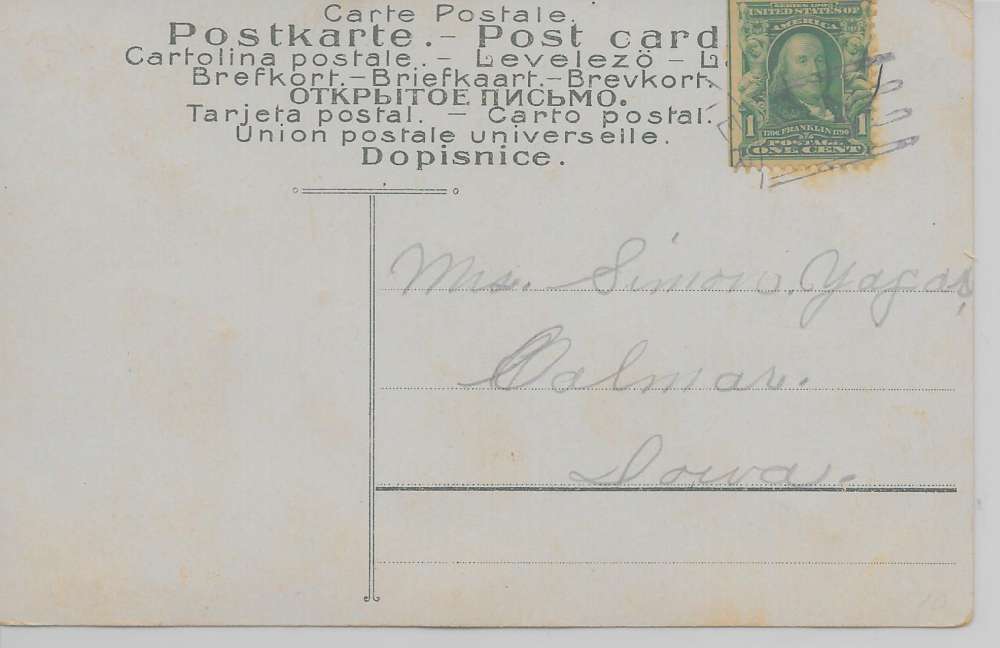 Carte Postale.
Postkarte.- Post card
Cartolina postale.- Levelezö -
Brefkort.-Briefkaart.-Brevkort.
ОТКРЫТОЕ ПИСЬМО.
Tarjeta postal. - Carto postal.
Union postale universelle.
Dopisnice.
SERIES 1902
UNITED STATES OF
AMERICA
1706 FRANKLIN 1790
1 1
POSTAGE
ONE CENT
Mrs. Simon Yagas
Calmar.
Iowa.
10